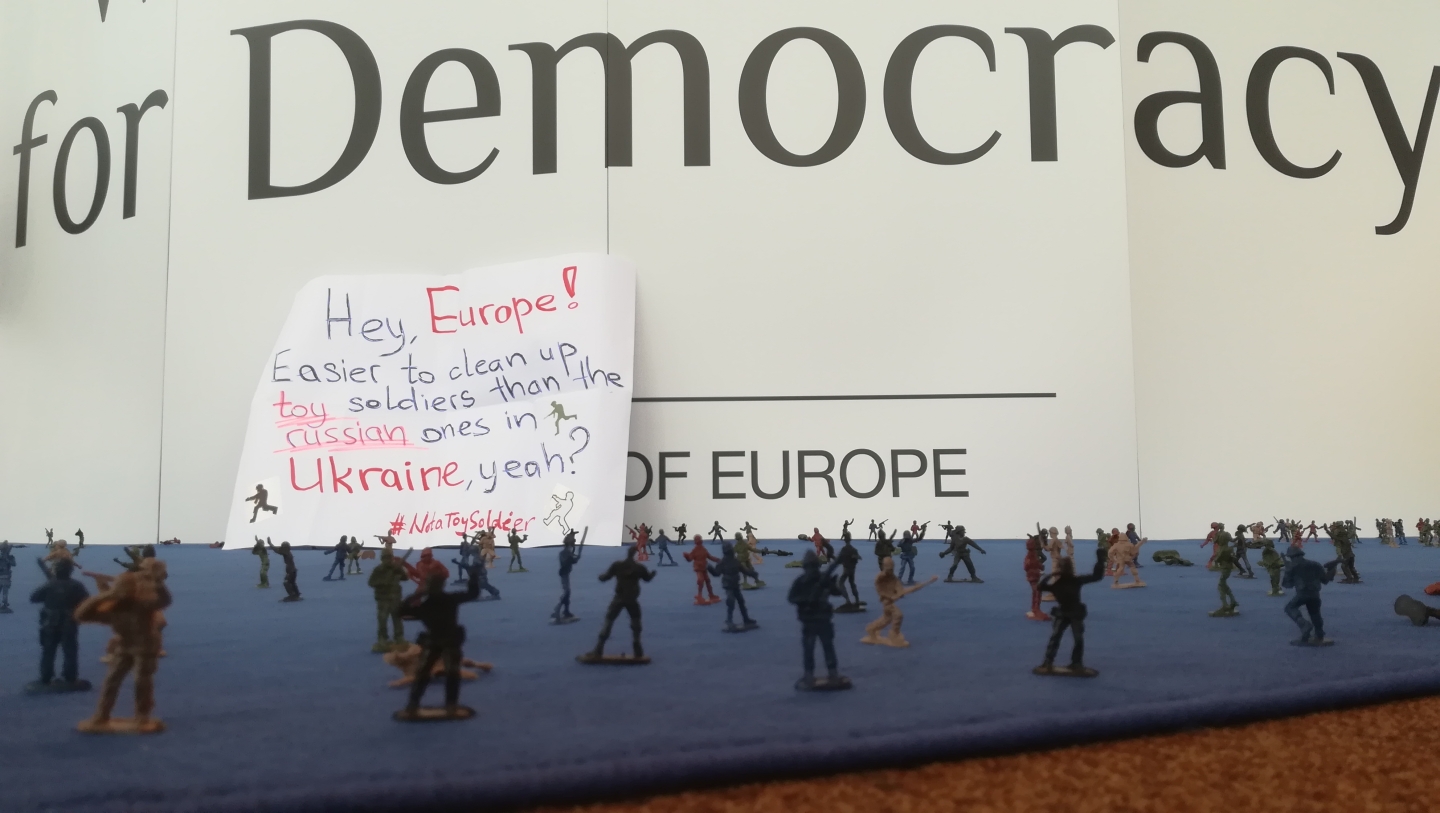 for Democracy
Hey, Europe!
Easier to clean up
toy soldiers than the
russian ones in
Ukraine, yeah?
#NotaToySoldier
OF EUROPE